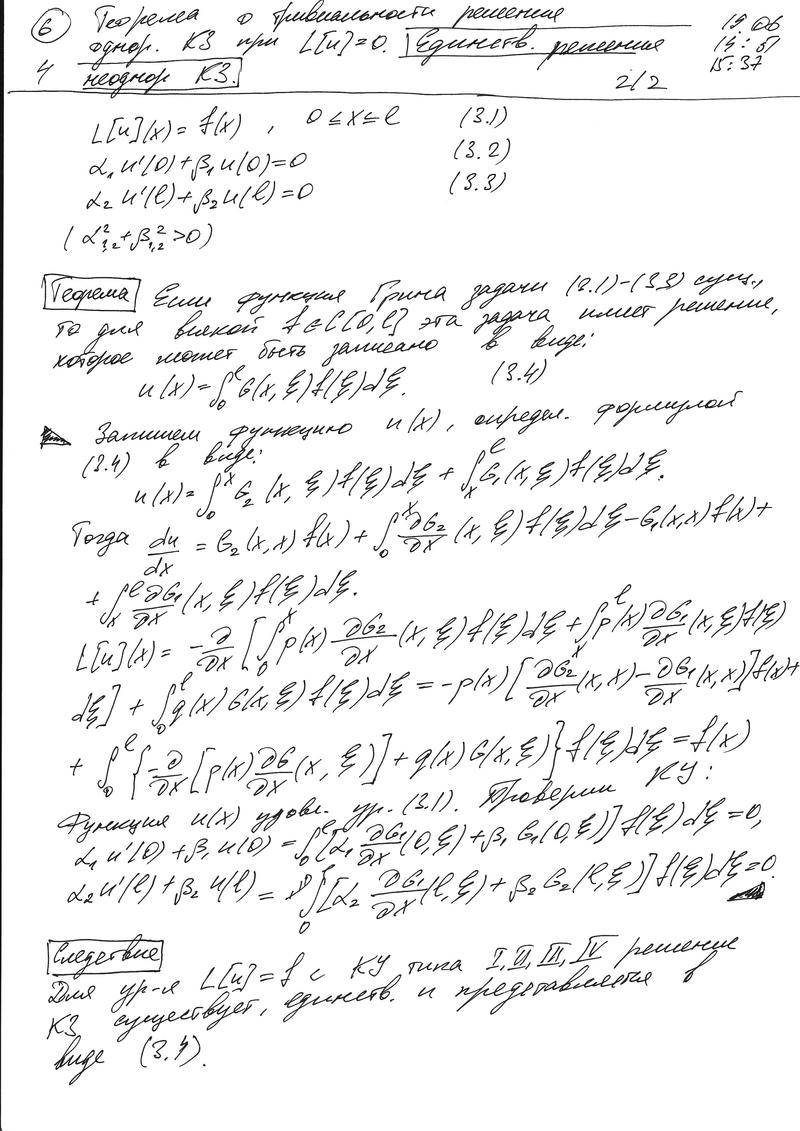 6 Теорема о тривиальности решение 19 06
однор. КЗ при L[u]=0. Единств. решения 15:51
4 неоднор КЗ. 2/2 15:37
L[u](x) = f(x), 0 ≤ x ≤ l (3.1)
α₁u'(0)+β₁u(0)=0 (3.2)
α₂u'(l)+β₂u(l)=0 (3.3)
(α²₁,₂+β²₁,₂>0)
Теорема Если функция Грина задачи (3.1)-(3.3) сущ.,
то для всякой f∈C[0,l] эта задача имеет решение,
которое может быть записано в виде:
u(x)=∫₀ˡ G(x,ξ)f(ξ)dξ. (3.4)
Запишем функцию u(x), определ. формулой
(3.4) в виде:
u(x)=∫₀ˣ G₂(x,ξ)f(ξ)dξ + ∫ₓˡ G₁(x,ξ)f(ξ)dξ.
Тогда du/dx = G₂(x,x)f(x) + ∫₀ˣ ∂G₂/∂x (x,ξ)f(ξ)dξ − G₁(x,x)f(x)+
+ ∫ₓˡ ∂G₁/∂x (x,ξ)f(ξ)dξ.
L[u](x) = −∂/∂x [∫₀ˣ p(x) ∂G₂/∂x (x,ξ)f(ξ)dξ + ∫ₓˡ p(x) ∂G₁/∂x (x,ξ)f(ξ)
dξ] + ∫₀ˡ q(x)G(x,ξ)f(ξ)dξ = −p(x)[∂G₂/∂x (x,x) − ∂G₁/∂x (x,x)]f(x)+
+ ∫₀ˡ {−∂/∂x [p(x) ∂G/∂x (x,ξ)] + q(x)G(x,ξ)}f(ξ)dξ = f(x)
Функция u(x) удовл. ур. (3.1). Проверим КУ:
α₁u'(0)+β₁u(0) = ∫₀ˡ [α₁ ∂G₁/∂x (0,ξ)+β₁G₁(0,ξ)]f(ξ)dξ=0,
α₂u'(l)+β₂u(l) = ∫₀ˡ [α₂ ∂G₁/∂x (l,ξ)+β₂G₂(l,ξ)]f(ξ)dξ=0.
Следствие
Для ур-я L[u]=f с КУ типа I, II, III, IV решение
КЗ существует, единств. и представляется в
виде (3.4).